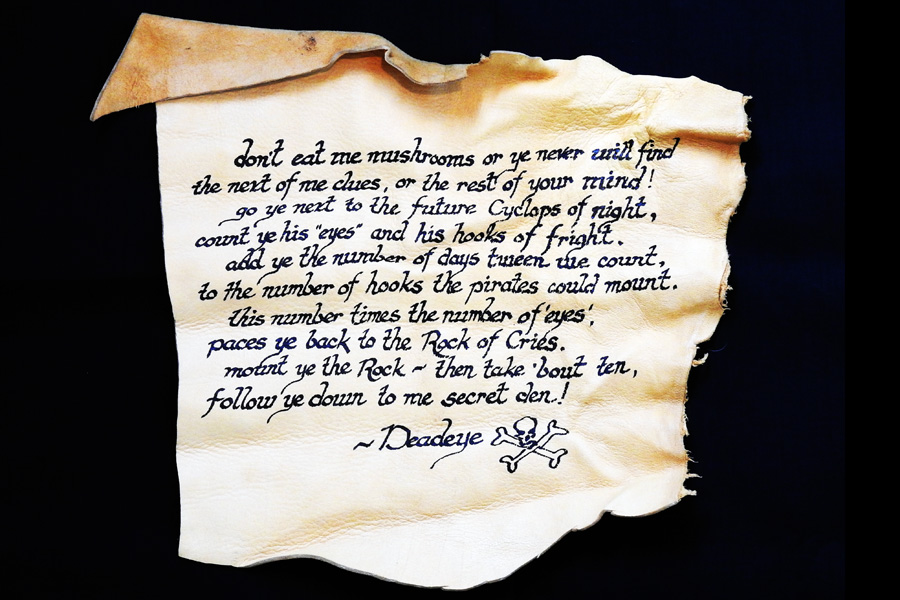 don't eat me mushrooms or ye never will find
the next of me clues, or the rest of your mind!
go ye next to the future Cyclops of night,
count ye his "eyes" and his hooks of fright.
add ye the number of days tween we count,
to the number of hooks the pirates could mount.
this number times the number of 'eyes',
paces ye back to the Rock of Cries.
mount ye the Rock ~ then take 'bout ten,
follow ye down to me secret den.!
~ Deadeye